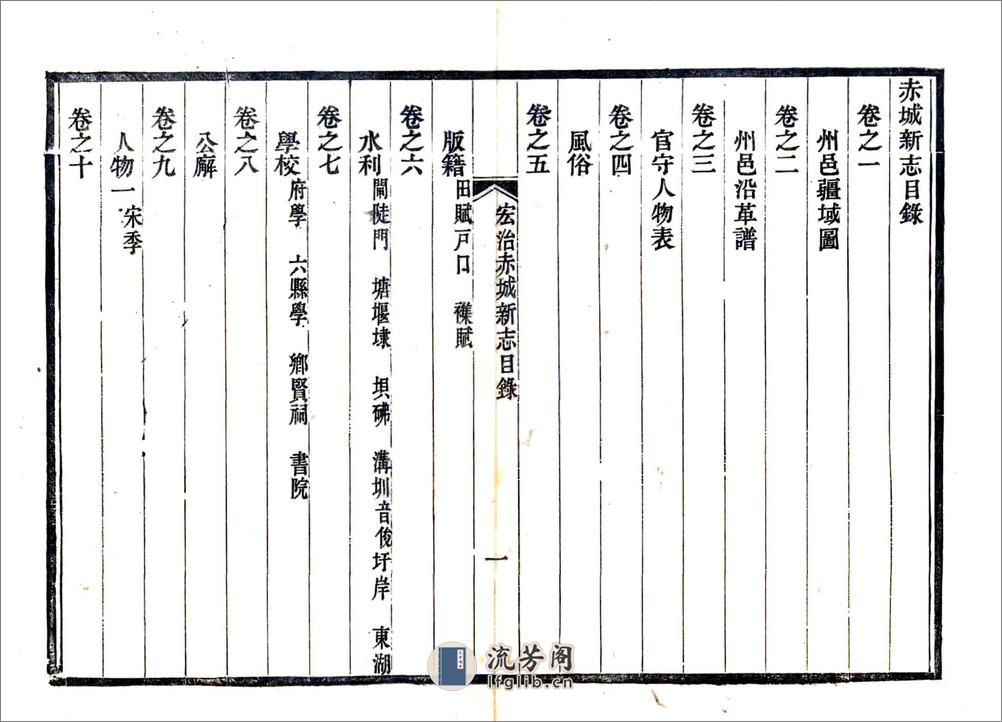 赤城新志目錄
卷之一
州邑疆域圖
卷之二
州邑沿革譜
卷之三
官守人物表
卷之四
風俗
卷之五
宏治赤城新志目錄
一
版籍 田賦 戸口 襍賦
卷之六
水利 閘陡門 塘堰埭 坦砩 溝圳音俊圩岸 東湖
卷之七
學校 府學 六縣學 鄉賢祠 書院
卷之八
公廨
卷之九
人物一 宋季
卷之十
流芳阁
lfglib.cn